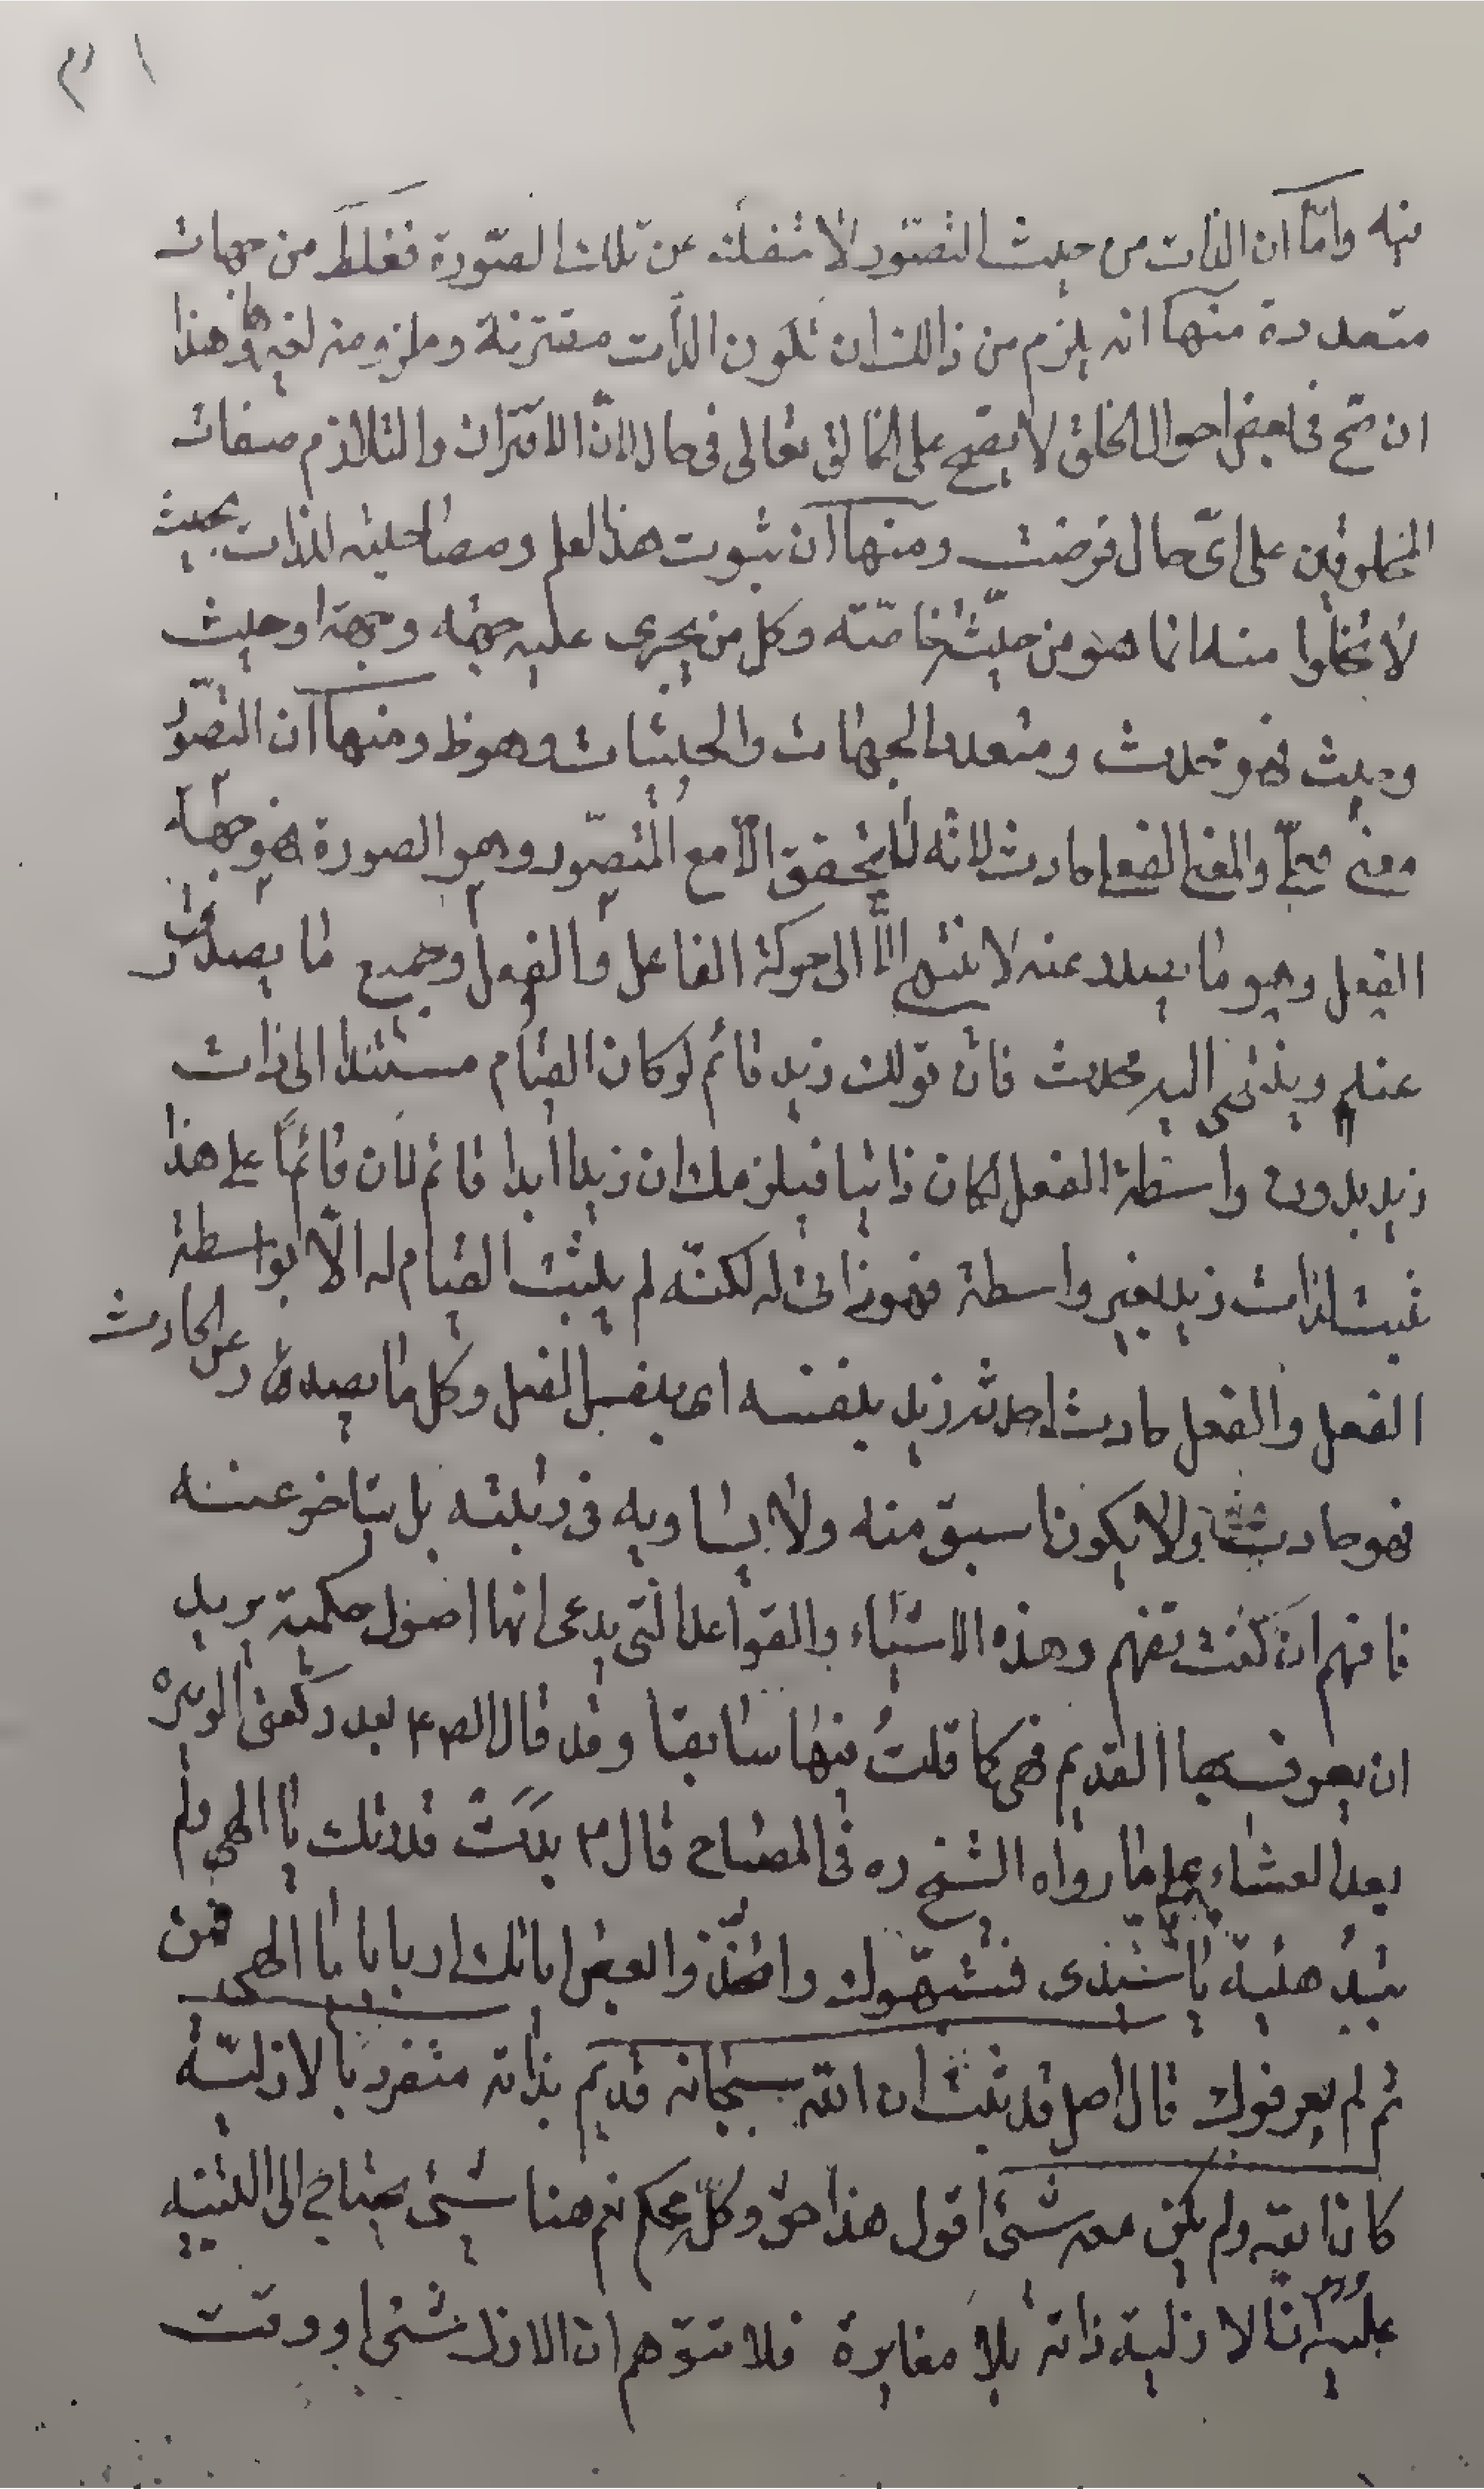 فيه وامّا ان الذات من حيث التصور لا تنفك عن تلك الصّورة فغلط من جهات
متعددة منها انه يلزم من ذالك ان تكون الذات مقترنة وملزومة لغيرها وهذا
ان صح فى بعض احوال الخلق لا يصح على الخالق تعالى فى حال لانّ الاقتران والتلازم صفات
المخلوقين على اىّ حال فرضت ومنها ان ثبوت هذا لعلم ومصاحبته للذات بحيث
لا تخلوا منه انما هو من حيث خاصّته وكل من يجرى عليه جهة وجهة او حيث
وحيث فهو محدث ومتعدد الجهات والحيثيات وهو ظ ومنها ان التصوّر
معنى فعلىّ والمعنى الفعلى حادث لانّه لا يتحقق الّا مع المتصوّر وهو الصورة فهو جهة
الفعل وهو ما يصدر عنه لا ينتهى الّا الى حركة الفاعل والفعل وجميع ما يصدر
عنه وينتهى اليه محدث فان قولك زيد قائم لو كان القيام مستندا الى ذات
زيد بدون واسطة الفعل لكان ذاتيا فيلزمك ان زيدا ابدا قائم لان قائماً على هذا
ثبت لذات زيد بغير واسطة فهو ذاتى له لكنّه لم يثبت القيام له الّا بواسطة
الفعل والفعل حادث احدثه زيد بنفسه اى بنفس الفعل وكل ما يصدر عن الحادث
فهو حادث ولا يكون اسبق منه ولا يساويه فى رتبته بل يتاخر عنه
فافهم ان كنت تفهم وهذه الاشياء والقواعد التى يدعى انها اصول حكمية يريد
ان يعرف بها القديم فهى كما قلتُ فيها سابقا وقد قال الص ع بعد ركعتى الوتيرة
بعد العشاء على ما رواه الشيخ ره فى المصباح قال ع بدت قدرتك يا الهى ولم
تبدُ هيئة يا سيّدى فشبّهوك واتخذوا بعض اياتك اربابا يا الهى فمن
ثم لم يعرفوك قال اصل قد ثبت ان الله سبحانه قديم بذاته متفرد بالازليّة
كان الله ولم يكن معه شئ اقول هذا حق وكلّ محكم نعم هنا شئ يحتاج الى التنبيه
عليه وهو انّ الازلية ذاته بلا مغايرة فلا تتوهم ان الازل شئ او وقت